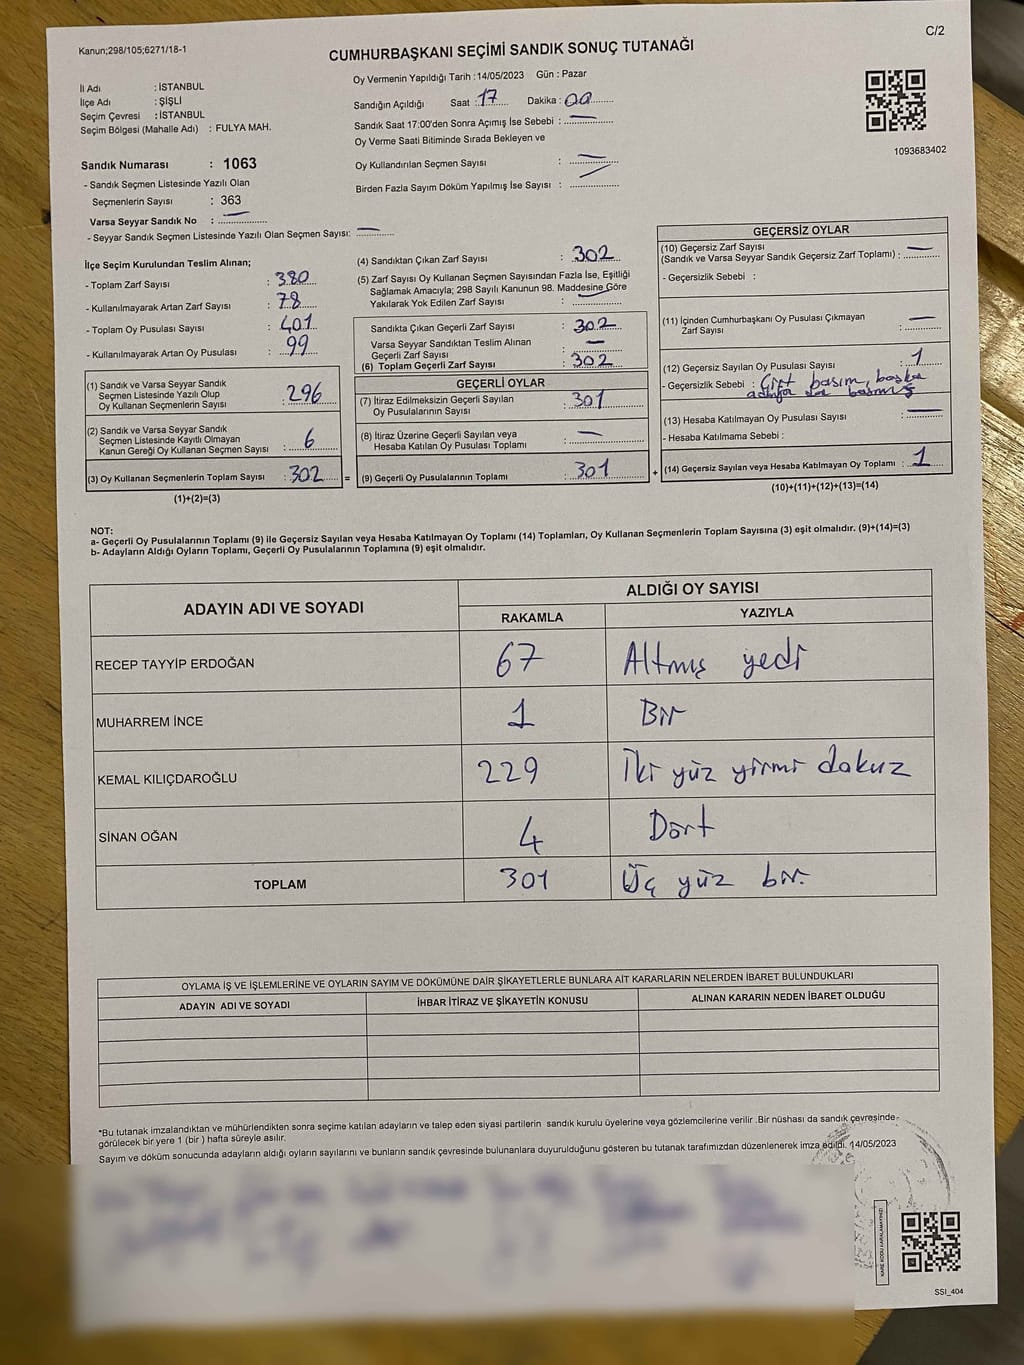 Kanun;298/105;6271/18-1
C/2
CUMHURBAŞKANI SEÇİMİ SANDIK SONUÇ TUTANAĞI
İl Adı : İSTANBUL
İlçe Adı : ŞİŞLİ
Seçim Çevresi : İSTANBUL
Seçim Bölgesi (Mahalle Adı) : FULYA MAH.
Sandık Numarası : 1063
- Sandık Seçmen Listesinde Yazılı Olan
Seçmenlerin Sayısı : 363
Varsa Seyyar Sandık No : —
- Seyyar Sandık Seçmen Listesinde Yazılı Olan Seçmen Sayısı: —
Oy Vermenin Yapıldığı Tarih :14/05/2023 Gün : Pazar
Sandığın Açıldığı Saat : 17 Dakika : 00
Sandık Saat 17:00'den Sonra Açımış İse Sebebi : —
Oy Verme Saati Bitiminde Sırada Bekleyen ve
Oy Kullandırılan Seçmen Sayısı : —
Birden Fazla Sayım Döküm Yapılmış İse Sayısı : —
1093683402
İlçe Seçim Kurulundan Teslim Alınan;
- Toplam Zarf Sayısı : 380
- Kullanılmayarak Artan Zarf Sayısı : 78
- Toplam Oy Pusulası Sayısı : 401
- Kullanılmayarak Artan Oy Pusulası : 99
(1) Sandık ve Varsa Seyyar Sandık
Seçmen Listesinde Yazılı Olup
Oy Kullanan Seçmenlerin Sayısı : 296
(2) Sandık ve Varsa Seyyar Sandık
Seçmen Listesinde Kayıtlı Olmayan
Kanun Gereği Oy Kullanan Seçmen Sayısı : 6
(3) Oy Kullanan Seçmenlerin Toplam Sayısı : 302 =
(1)+(2)=(3)
(4) Sandıktan Çıkan Zarf Sayısı : 302
(5) Zarf Sayısı Oy Kullanan Seçmen Sayısından Fazla İse, Eşitliği
Sağlamak Amacıyla; 298 Sayılı Kanunun 98. Maddesine Göre
Yakılarak Yok Edilen Zarf Sayısı : —
Sandıkta Çıkan Geçerli Zarf Sayısı : 302
Varsa Seyyar Sandıktan Teslim Alınan
Geçerli Zarf Sayısı : —
(6) Toplam Geçerli Zarf Sayısı : 302
GEÇERLİ OYLAR
(7) İtiraz Edilmeksizin Geçerli Sayılan
Oy Pusulalarının Sayısı : 301
(8) İtiraz Üzerine Geçerli Sayılan veya
Hesaba Katılan Oy Pusulası Toplamı : —
(9) Geçerli Oy Pusulalarının Toplamı : 301 +
GEÇERSİZ OYLAR
(10) Geçersiz Zarf Sayısı
(Sandık ve Varsa Seyyar Sandık Geçersiz Zarf Toplamı) : —
- Geçersizlik Sebebi :
(11) İçinden Cumhurbaşkanı Oy Pusulası Çıkmayan
Zarf Sayısı : —
(12) Geçersiz Sayılan Oy Pusulası Sayısı : 1
- Geçersizlik Sebebi : Çift basım, başka
basmış
(13) Hesaba Katılmayan Oy Pusulası Sayısı : —
- Hesaba Katılmama Sebebi :
(14) Geçersiz Sayılan veya Hesaba Katılmayan Oy Toplamı : 1
(10)+(11)+(12)+(13)=(14)
NOT:
a- Geçerli Oy Pusulalarının Toplamı (9) ile Geçersiz Sayılan veya Hesaba Katılmayan Oy Toplamı (14) Toplamları, Oy Kullanan Seçmenlerin Toplam Sayısına (3) eşit olmalıdır. (9)+(14)=(3)
b- Adayların Aldığı Oyların Toplamı, Geçerli Oy Pusulalarının Toplamına (9) eşit olmalıdır.
ADAYIN ADI VE SOYADI
ALDIĞI OY SAYISI
RAKAMLA YAZIYLA
RECEP TAYYİP ERDOĞAN 67 Altmış yedi
MUHARREM İNCE 1 Bir
KEMAL KILIÇDAROĞLU 229 İki yüz yirmi dokuz
SİNAN OĞAN 4 Dört
TOPLAM 301 Üç yüz bir.
OYLAMA İŞ VE İŞLEMLERİNE VE OYLARIN SAYIM VE DÖKÜMÜNE DAİR ŞİKAYETLERLE BUNLARA AİT KARARLARIN NELERDEN İBARET BULUNDUKLARI
ADAYIN ADI VE SOYADI İHBAR İTİRAZ VE ŞİKAYETİN KONUSU ALINAN KARARIN NEDEN İBARET OLDUĞU
*Bu tutanak imzalandıktan ve mühürlendikten sonra seçime katılan adayların ve talep eden siyasi partilerin sandık kurulu üyelerine veya gözlemcilerine verilir .Bir nüshası da sandık çevresinde
görülecek bir yere 1 (bir ) hafta süreyle asılır.
Sayım ve döküm sonucunda adayların aldığı oyların sayılarını ve bunların sandık çevresinde bulunanlara duyurulduğunu gösteren bu tutanak tarafımızdan düzenlenerek imza edildi. 14/05/2023
KARE KODU KARALAMAYINIZ!
SSI_404